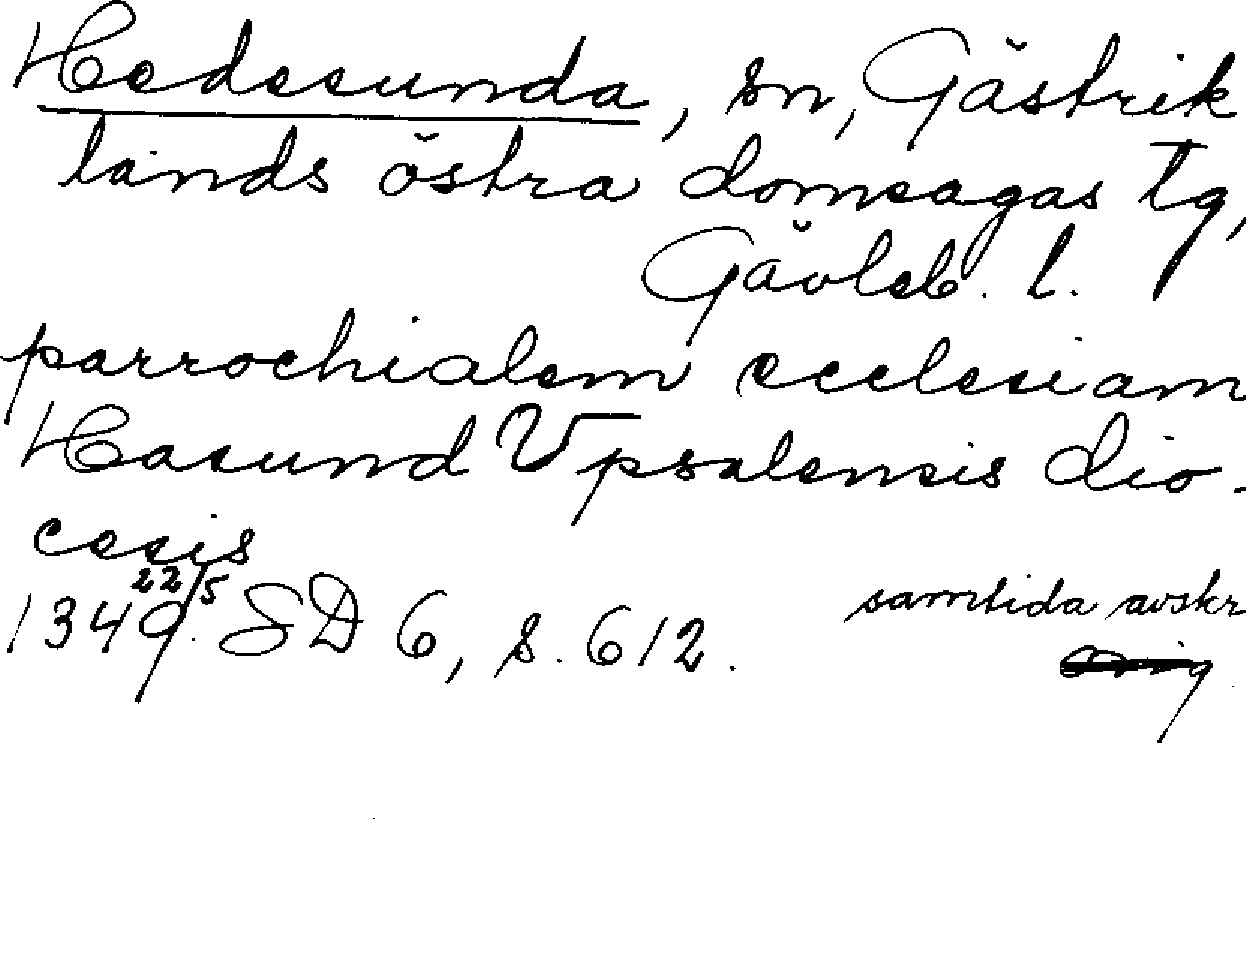 Hedesunda, sn, Gästrik
lands östra domsagas tg,
Gävleb. l.
parrochialem ecclesiam
Hasund Vpsalensis dio-
cesis
1349 22/5. SD 6, s. 612.
samtida avskr
orig